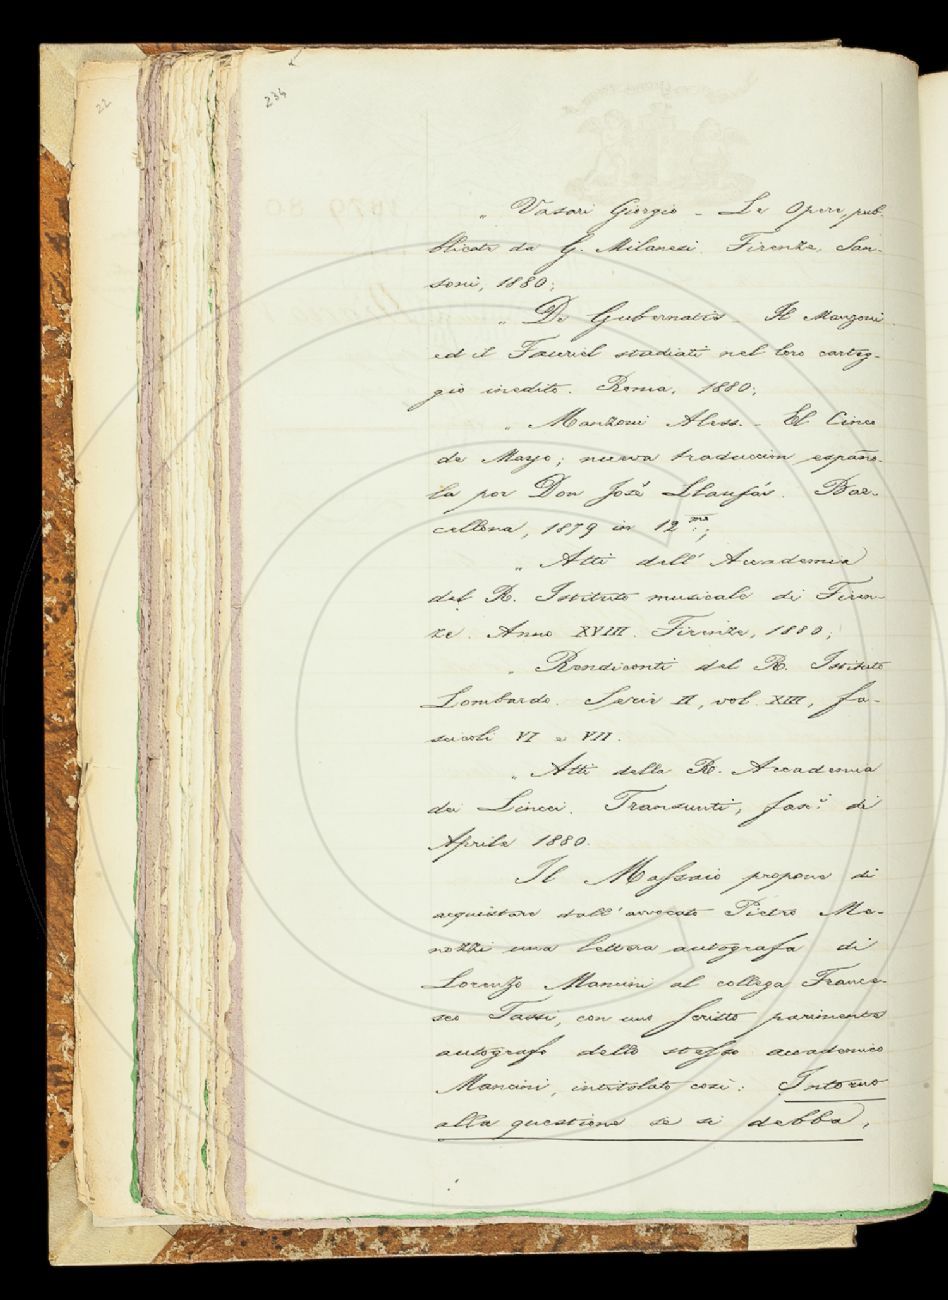 22
234
„ Vasari Giorgio – Le Opere, pub-
blicate da G. Milanesi. Firenze, San-
soni, 1880;
„ De Gubernatis – Il Manzoni
ed il Fauriel studiati nel loro carteg-
gio inedito. Roma, 1880;
„ Manzoni Aless. – El Cinco
de Mayo; nueva traduccion españo-
la por Don José Llausás. Bar-
cellona, 1879 in 12.mo;
„ Atti dell' Accademia
del R. Istituto musicale di Firen-
ze. Anno XVIII. Firenze, 1880;
„ Rendiconti del R. Istituto
Lombardo. Serie II, vol. XIII, fa-
scicoli VI e VII.
„ Atti della R. Accademia
dei Lincei. Transunti, fasc.º di
Aprile 1880.
Il Massaio propone di
acquistare dall'avvocato Pietro Me-
nozzi una lettera autografa di
Lorenzo Mancini al collega France-
sco Tassi, con uno scritto parimente
autografo dello stesso accademico
Mancini, intitolato così: Intorno
alla questione se si debba,